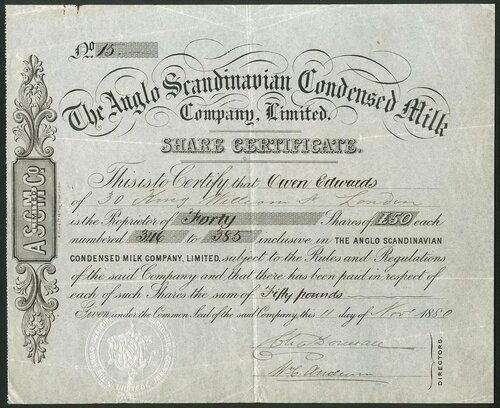 No. 15.
The Anglo Scandinavian Condensed Milk
Company, Limited.
SHARE CERTIFICATE.
This is to Certify that Owen Edwards
of 30 King William St London
is the Proprietor of Forty Shares of £50 each
numbered 346 to 385 inclusive in THE ANGLO SCANDINAVIAN
CONDENSED MILK COMPANY, LIMITED, subject to the Rules and Regulations
of the said Company and that there has been paid in respect of
each of such Shares the sum of Fifty pounds
Given under the Common Seal of the said Company, this 11 day of Novr 1880
DIRECTORS.
A.S.C.M. Co.